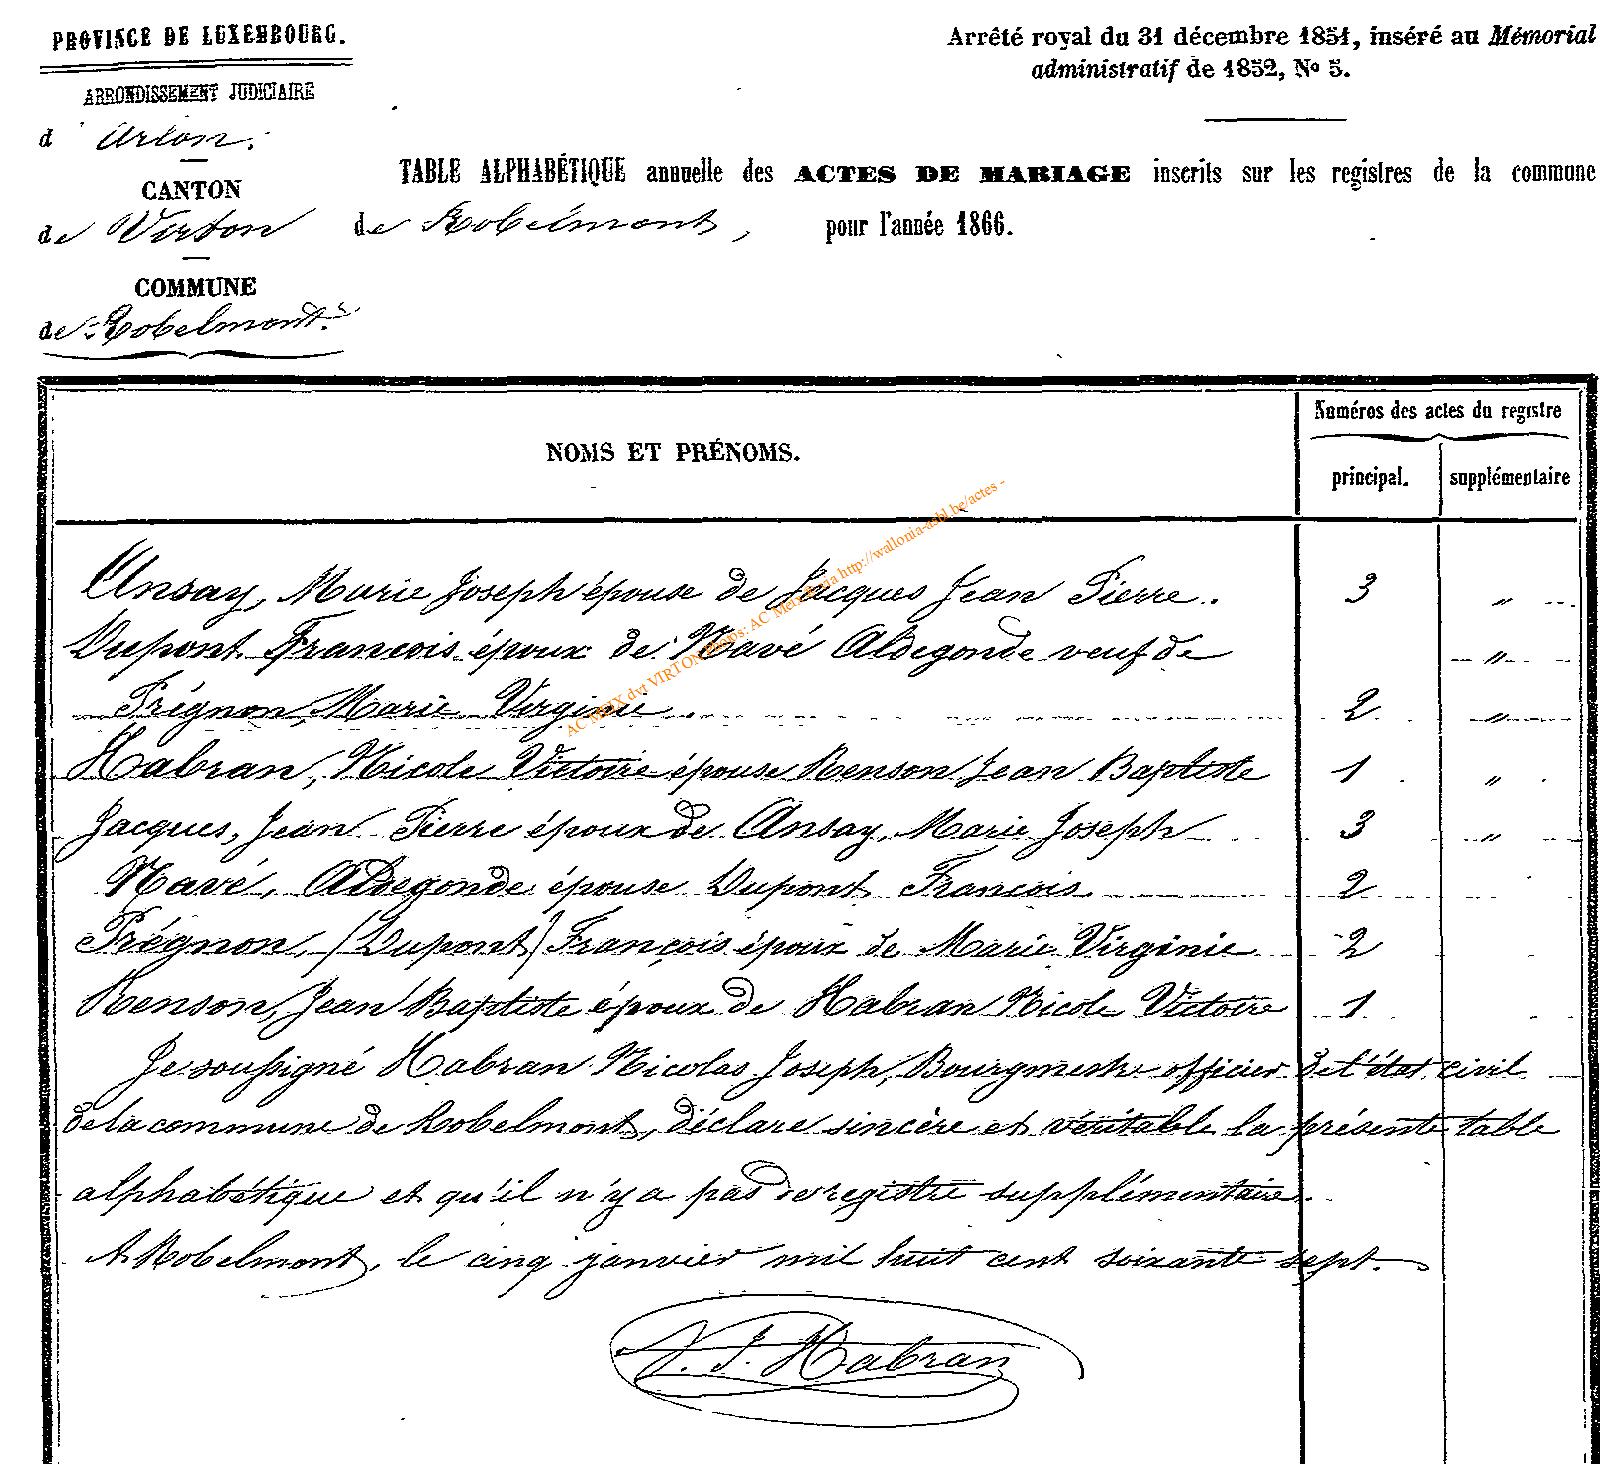 PROVINCE DE LUXEMBOURG.
ARRONDISSEMENT JUDICIAIRE
d'Arlon.
CANTON
de Virton
COMMUNE
de Robelmont.
Arrêté royal du 31 décembre 1851, inséré au Mémorial
administratif de 1852, No 5.
TABLE ALPHABÉTIQUE annuelle des ACTES DE MARIAGE inscrits sur les registres de la commune
de Robelmont, pour l'année 1866.
NOMS ET PRÉNOMS.
Numéros des actes du registre
principal. supplémentaire
Ansay, Marie Joseph épouse de Jacques Jean Pierre. 3 "
Dupont François époux de Navé Aldegonde veuf de "
Trégnon, Marie Virginie 2 "
Habran, Nicole Victoire épouse Renson Jean Baptiste 1 "
Jacques, Jean Pierre époux de Ansay, Marie Joseph 3 "
Navé, Aldegonde épouse Dupont François 2
Trégnon, (Dupont) François époux de Marie Virginie 2
Renson, Jean Baptiste époux de Habran Nicole Victoire 1
Je soussigné Habran Nicolas Joseph, Bourgmestre officier de l'état civil
de la commune de Robelmont, déclare sincère et véritable la présente table
alphabétique et qu'il n'y a pas de registre supplémentaire.
A Robelmont, le cinq janvier mil huit cent soixante sept.
N. J. Habran
http://wallonia-asbl.be/actes -